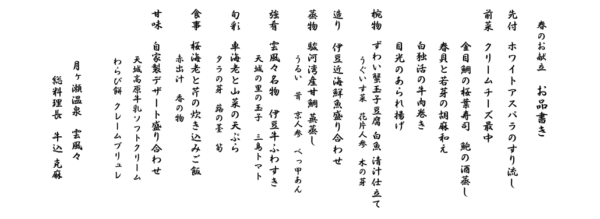 春のお献立　お品書き
先付　ホワイトアスパラのすり流し
前菜　クリームチーズ最中
金目鯛の桜葉寿司　鮑の酒蒸し
春貝と若芽の胡麻和え
白独活の牛肉巻き
目光のあられ揚げ
椀物　ずわい蟹玉子豆腐 白魚 清汁仕立て
うぐいす菜　花片人参　木の芽
造り　伊豆近海鮮魚盛り合わせ
蒸物　駿河湾産甘鯛 蕪蒸し
うるい　茸　京人参　べっ甲あん
強肴　雲風々名物　伊豆牛ふわすき
天城の里の玉子　三島トマト
旬彩　車海老と山菜の天ぷら
タラの芽　蕗の薹　筍
食事　桜海老と芹の炊き込みご飯
赤出汁　香の物
甘味　自家製デザート盛り合わせ
天城高原牛乳ソフトクリーム
わらび餅　クレームブリュレ
月ヶ瀬温泉　雲風々
総料理長　牛込 克麻